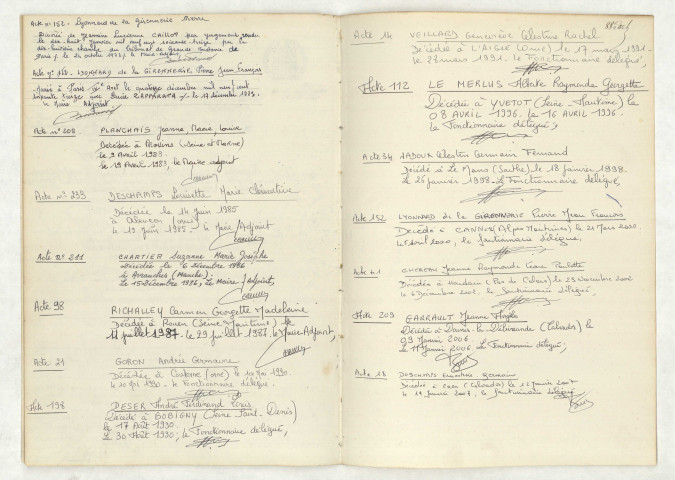 Acte n° 152 - Lyonnard de la Girennerie Pierre
Divorcé de Germaine Suzanne CAILLOT par jugement rendu
le dix-huit janvier mil neuf cent soixante treize par la
dix-huitième chambre du tribunal de Grande Instance de
Paris, le 24 octobre 1973, le Maire Adjoint
Acte n° 152 - LYONNARD de la GIRENNERIE, Pierre Jean François
Marié à Paris le quatorze décembre mil neuf cent
soixante treize avec Lucie ZAPPARATA le 17 décembre 1973,
le Maire Adjoint
Acte n° 308 PLANCHAIS Jeanne Marie Louise
Décédée à Moulins (Seine et Marne)
le 9 Avril 1983
le 19 Avril 1983, le Maire adjoint
Acte n° 239 DESCHAMPS Henriette Marie Clémentine
Décédée le 14 juin 1985
à Alençon (orne)
le 19 juin 1985. le Maire Adjoint
Acte n° 211 CHARTIER Suzanne Marie Josèphe
Décédée le 6 décembre 1986
à Avranches (Manche).
le 15 décembre 1986, le Maire Adjoint,
Acte 98 RICHALLEY Carmen Georgette Madeleine
Décédée à Rouen (Seine Maritime) le
11 juillet 1987. le 29 juillet 1987. le Maire-Adjoint,
Acte 21 GORON Andrée Germaine
Décédée à Ceton (orne) le 10 mai 1990.
le 20 mai 1990. le Fonctionnaire délégué.
Acte 198 DESER André Ferdinand Louis
Décédé à BOBIGNY (Seine Saint-Denis)
le 17 Août 1990
le 30 Août 1990, le Fonctionnaire délégué,
Acte 14 VEILLARD Geneviève Célestine Rachel
Décédée à L'AIGLE (Orne) le 17 mars 1991.
le 28 mars 1991. le Fonctionnaire délégué,
Acte 112 LE MERLUS Alberte Raymonde Georgette
Décédée à YVETOT (Seine-Maritime) le
08 AVRIL 1996. le 16 AVRIL 1996.
le Fonctionnaire délégué,
Acte 34 JADOUX Célestin Germain Fernand
Décédé à Le Mans (Sarthe) le 18 janvier 1998.
le 26 janvier 1998. le Fonctionnaire délégué,
Acte 152 LYONNARD de la GIRENNERIE Pierre Jean François
Décédé à CANNES (Alpes Maritimes) le 21 Mars 2000.
le avril 2000, le fonctionnaire délégué,
Acte 41 Jeanne Raymonde Paulette
Décédée à (Pas de Calais) le 23 Novembre 2002
le 6 Décembre 2002, le fonctionnaire délégué,
Acte 209 GARRAULT Jeanne Angèle
Décédée à Douvres-la-Délivrande (Calvados) le
09 Janvier 2006.
le 17 Janvier 2006. le Fonctionnaire délégué,
Acte 18 DESCHAMPS Germain
Décédé à Caen (Calvados) le 12 janvier 2007
le 19 janvier 2007, le fonctionnaire délégué